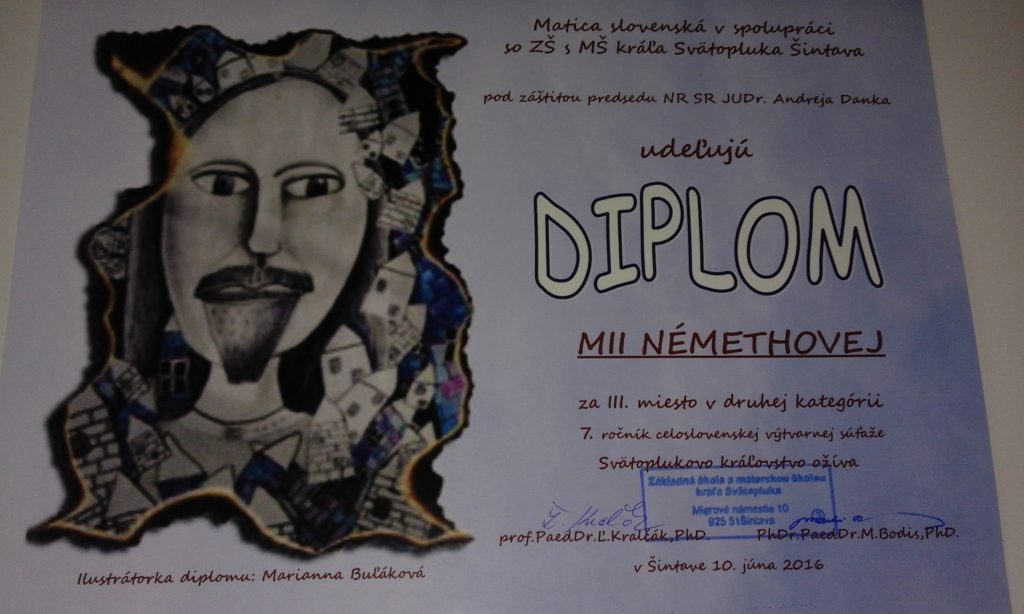 Matica slovenská v spolupráci
so ZŠ s MŠ kráľa Svätopluka Šintava
pod záštitou predsedu NR SR JUDr. Andreja Danka
udeľujú
DIPLOM
MII NÉMETHOVEJ
za III. miesto v druhej kategórii
7. ročník celoslovenskej výtvarnej súťaže
Svätoplukovo kráľovstvo ožíva
Základná škola s materskou školou
kráľa Svätopluka
Mierové námestie 10
925 51 Šintava
prof.PaedDr.Ľ.Kralčák,PhD. PhDr.PaedDr.M.Bodis,PhD.
v Šintave 10. júna 2016
Ilustrátorka diplomu: Marianna Buľáková